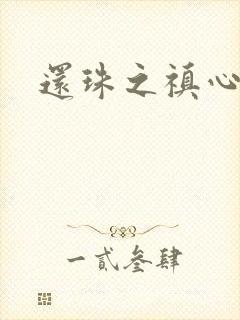 還珠之禛心
一貳叁肆